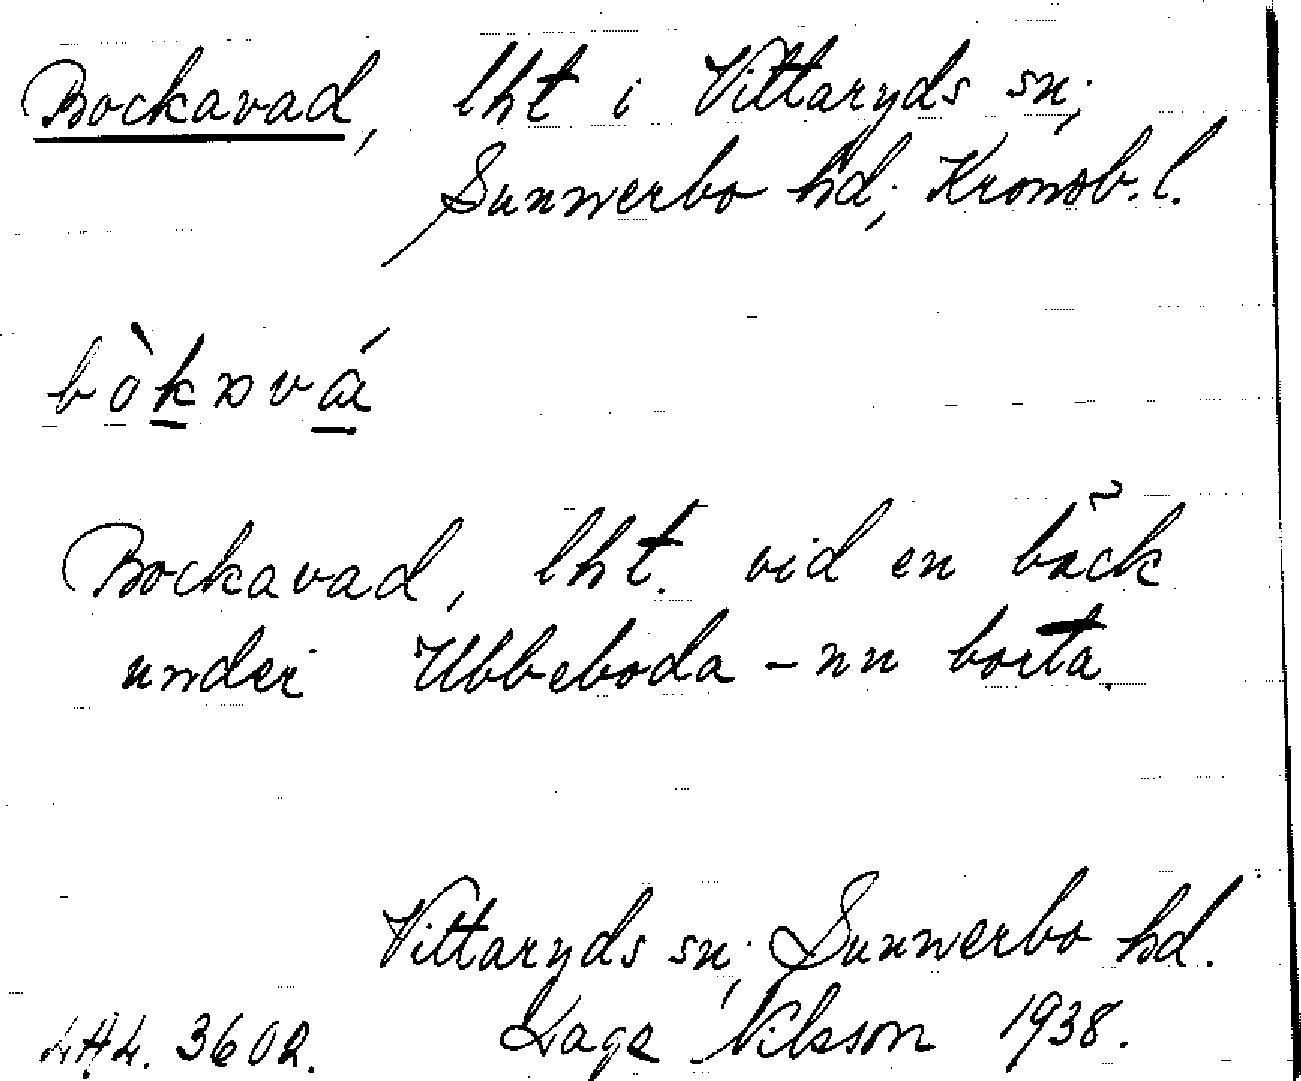 Bockavad, lht i Vittaryds sn;
Sunnerbo hd; Kronob. l.
bòkavá
Bockavad, lht. vid en bäck
under Ubbeboda – nu borta.
Vittaryds sn; Sunnerbo hd.
Kage Nilsson 1938.